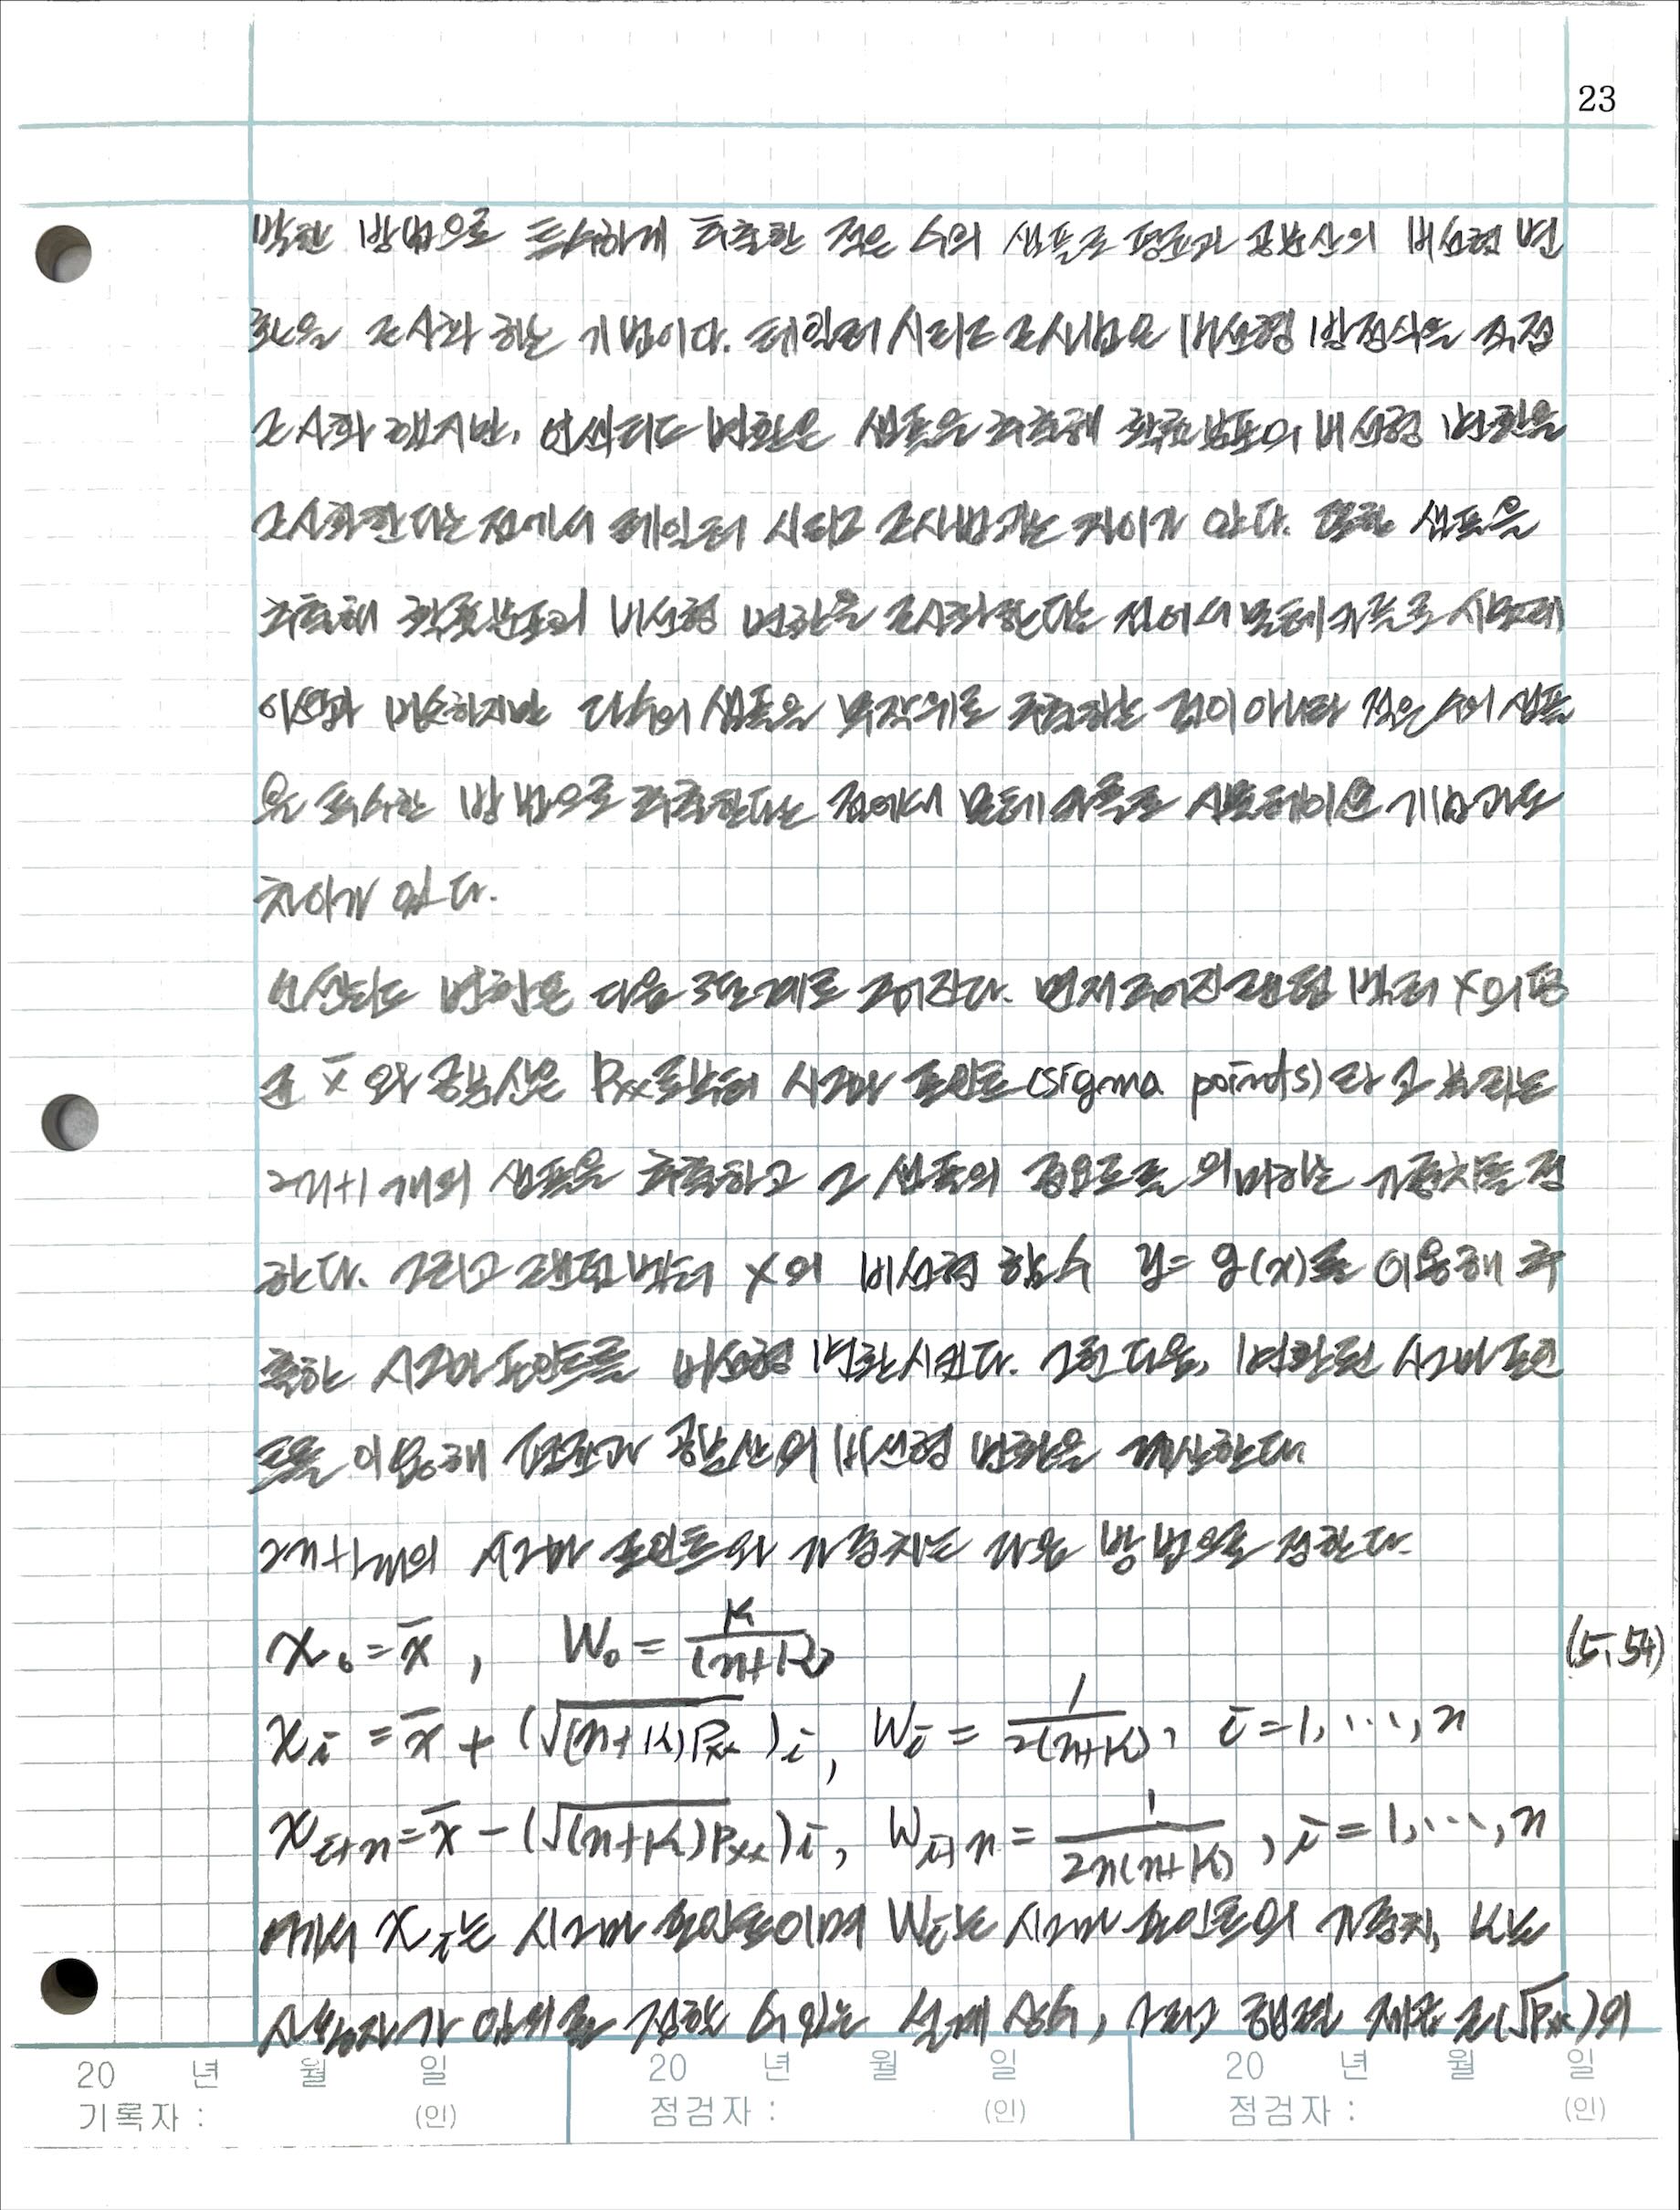 23
방법으로 특수하게 추출한 적은 수의 샘플로 평균과 공분산의 비선형 변
환을 근사화 하는 기법이다. 테일러 시리즈 근사법은 비선형 방정식을 직접
근사화 했지만, 언센티드 변환은 샘플을 추출해 확률분포의 비선형 변환을
근사화한다는 점에서 테일러 시리즈 근사법과는 차이가 있다. 또한 샘플을
추출해 확률분포의 비선형 변환을 근사화한다는 점에서 몬테카를로 시뮬레
이션과 비슷하지만 다수의 샘플을 무작위로 추출하는 것이 아니라 적은 수의 샘플
을 특수한 방법으로 추출한다는 점에서 몬테카를로 시뮬레이션 기법과도
차이가 있다.
언센티드 변환은 다음 3단계로 주어진다. 먼저 주어진 랜덤 벡터 X의 평
균 x̄ 와 공분산은 Pxx로부터 시그마 포인트(sigma points)라고 부르는
2n+1개의 샘플을 추출하고 그 샘플의 중요도를 의미하는 가중치를 정
한다. 그리고 랜덤벡터 X의 비선형 함수 y=g(x)를 이용해 추
출한 시그마 포인트를 비선형 변환시킨다. 그런 다음, 변환된 시그마 포인
트를 이용해 평균과 공분산의 비선형 변환을 계산한다
2n+1개의 시그마 포인트와 가중치는 다음 방법으로 정한다.
x₀ = x̄ , W₀ = K/(n+K) (5.54)
xᵢ = x̄ + (√(n+K)Pxx)i, Wᵢ = 1/2(n+K), i=1,...,n
xᵢ₊ₙ = x̄ - (√(n+K)Pxx)i, Wᵢ₊ₙ = 1/2n(n+K), i=1,...,n
여기서 Xᵢ는 시그마 포인트이며 Wᵢ는 시그마 포인트의 가중치, K는
사용자가 임의로 정할 수 있는 설계 상수, 그리고 행렬 제곱근(√Pxx)의
20 년 월 일 20 년 월 일 20 년 월 일
기록자 : (인) 점검자 : (인) 점검자 : (인)